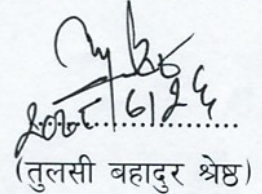 २०७८/6/२६
(तुलसी बहादुर श्रेष्ठ)